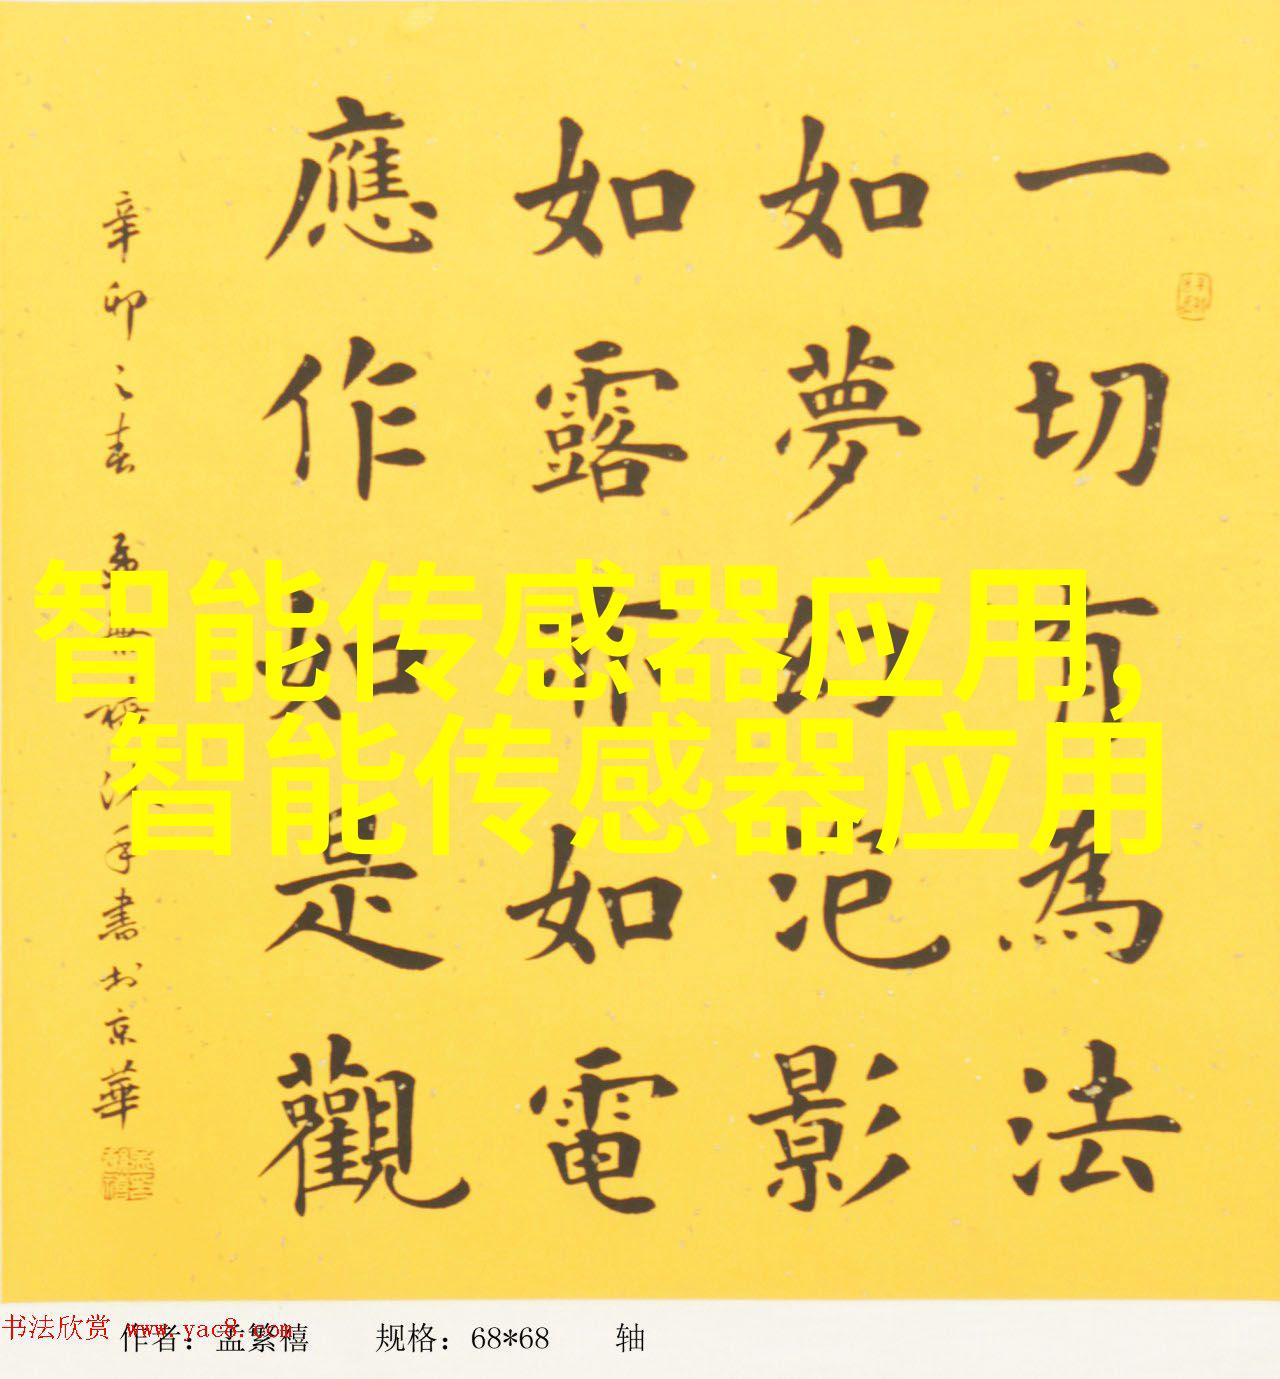 一切有為法
如夢幻泡影
如露亦如電
應作如是觀
辛卯之春 孟繁禧沐手書於京華
智能传感器应用,
智能传感器应用
书法欣赏 www.yac8.com
作者：孟繁禧 规格：68*68 轴